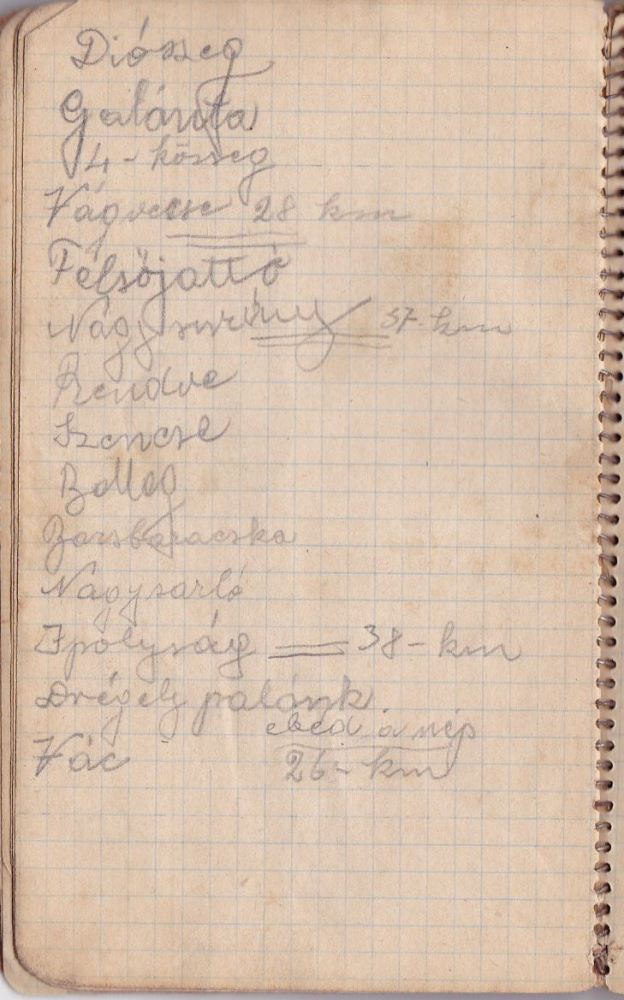 Diószeg
Galánta
4 - község
Vágvecse 28 km
Felsőjattó
Nagysurány 37 - km
Bendve
Szencse
Belleg
Barsbaracska
Nagysarló
Ipolyság = 38 - km
Drégely palánk.
ebéd a nép
Vác 26 - km